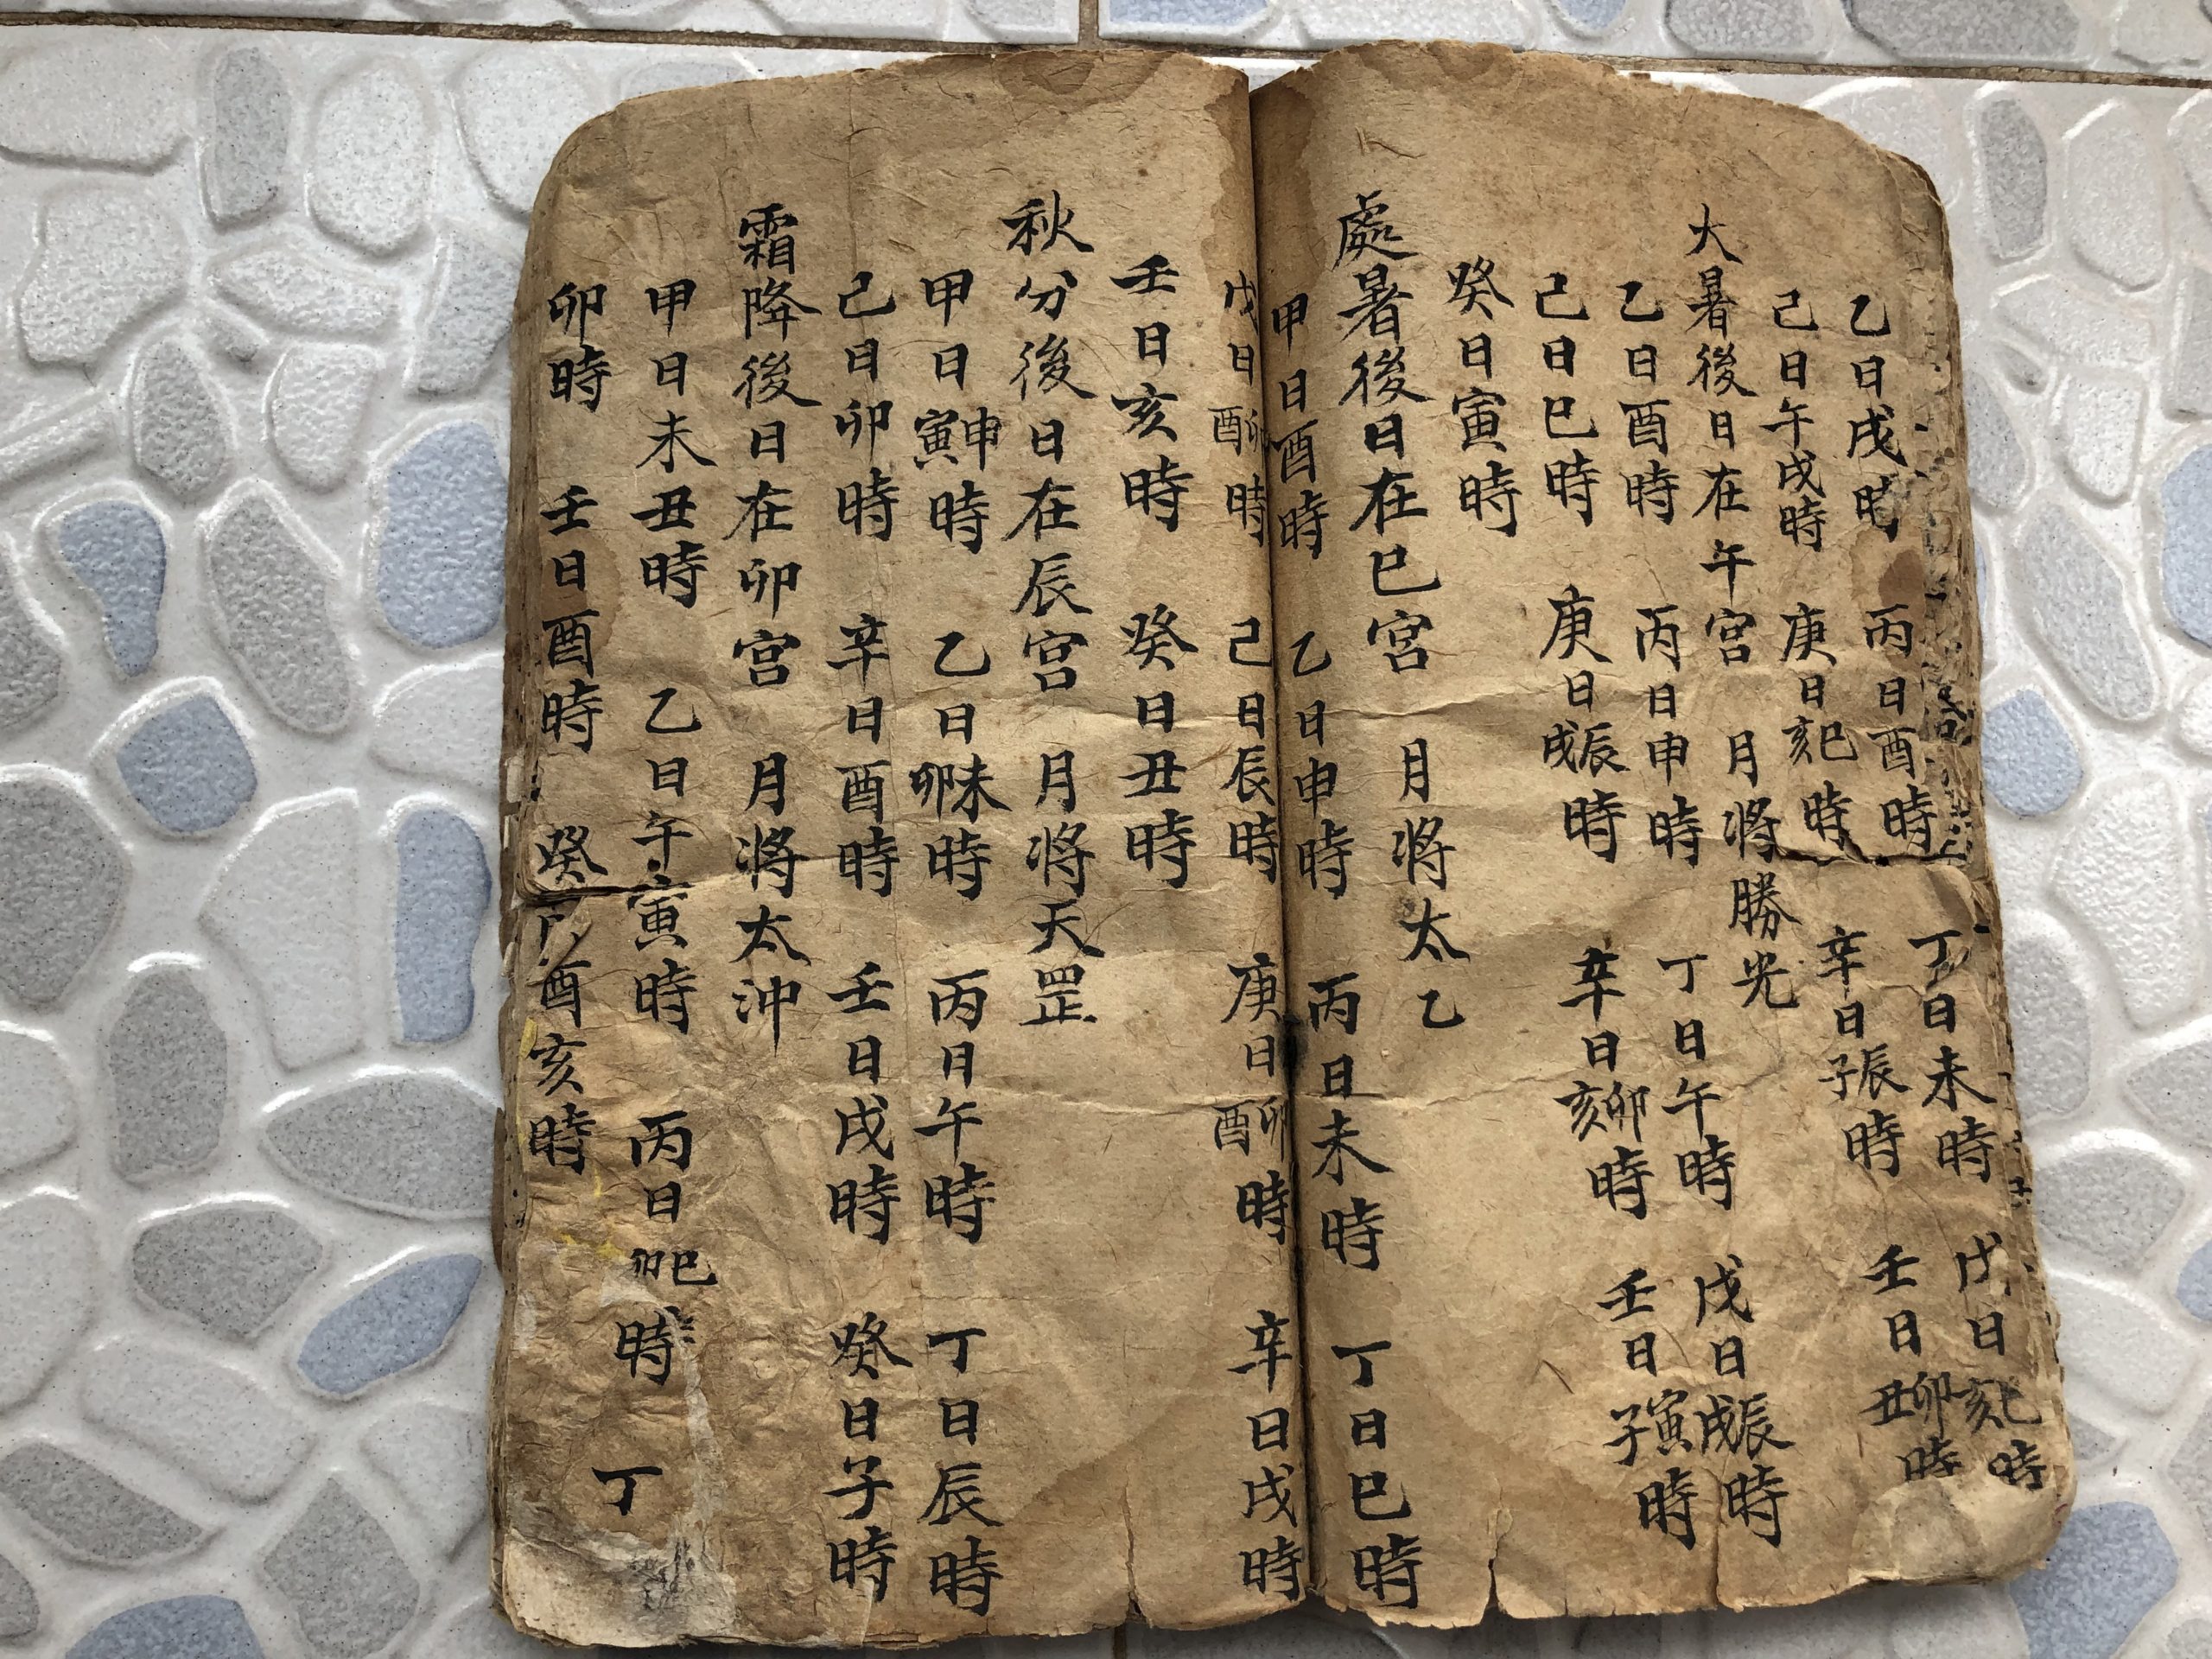 乙日戌時 丙日酉時 丁日未時 戊日亥巳時
己日午戌時 庚日亥巳時 辛日子辰時 壬日丑卯時
大暑後日在午宮 月將勝光
乙日酉時 丙日申時 丁日午時 戊日戌辰時
己日巳時 庚日戌辰時 辛日亥卯時 壬日子寅時
癸日寅時
處暑後日在巳宮 月將太乙
甲日酉時 乙日申時 丙日未時 丁日巳時
戊日酉卯時 己日辰時 庚日酉卯時 辛日戌時
壬日亥時 癸日丑時
秋分後日在辰宮 月將天罡
甲日寅申時 乙日卯未時 丙日午時 丁日辰時
己日卯時 辛日酉時 壬日戌時 癸日子時
霜降後日在卯宮 月將太沖
甲日未丑時 乙日午寅時 丙日卯巳時 丁
卯時 壬日酉時 癸酉亥時